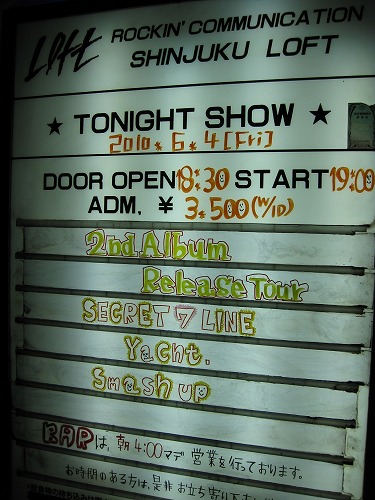 Loft ROCKIN' COMMUNICATION
SHINJUKU LOFT
★ TONIGHT SHOW ★
2010.6.4[Fri]
DOOR OPEN 18:30 START 19:00
ADM. ¥ 3.500(W/1D)
2nd Album
Release Tour
SECRET 7 LINE
Yacht.
Smash up
BARは、朝4:00マデ 営業を行っております。
お時間のある方は、是非お立ち寄り下さい